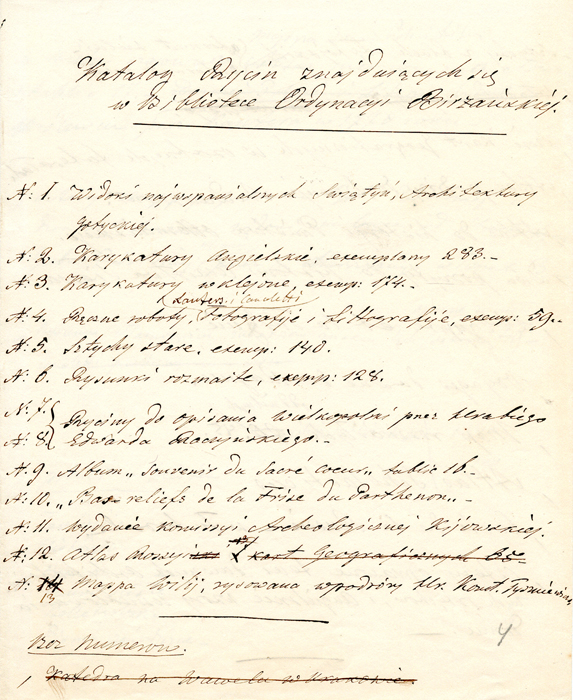 Katalog Rycin znajdujących się
w Bibliotece Ordynacyi Birżańskiej.
N: 1. Widoki najwspanialszych Świątyń, Architektury
gotyckiej.
N: 2. Karykatury Angielskie, exemplarzy 283.-
N: 3. Karykatury naklejone, exemp: 174.-
i Canoletti
N: 4. Ręczne roboty, fotografije i Littografije, exemp: 59.-
N: 5. Sztychy stare, exemp: 140.
N: 6. Rysunki rozmaite, exemp: 128.
N: 7.
Ryciny do opisania Wielkopolski przez Hrabiego
N: 8. Edwarda Raczyńskiego.-
N: 9. Album „Souvenir du Sacré coeur„ tablic 16.-
N: 10. „Bas reliefs de la Frise du Parthenon„-
N: 11. Wydanie Komissyi Archeologicznej Kijowskiej.
N: 12. Atlas kart Geograficznych 65
N: 13 Mappa Wilij, rysowana w podróży Hr. Konst. Tyszkiewicza
4
Bez Numerow.
Katedra na Wawelu w Krakowie.